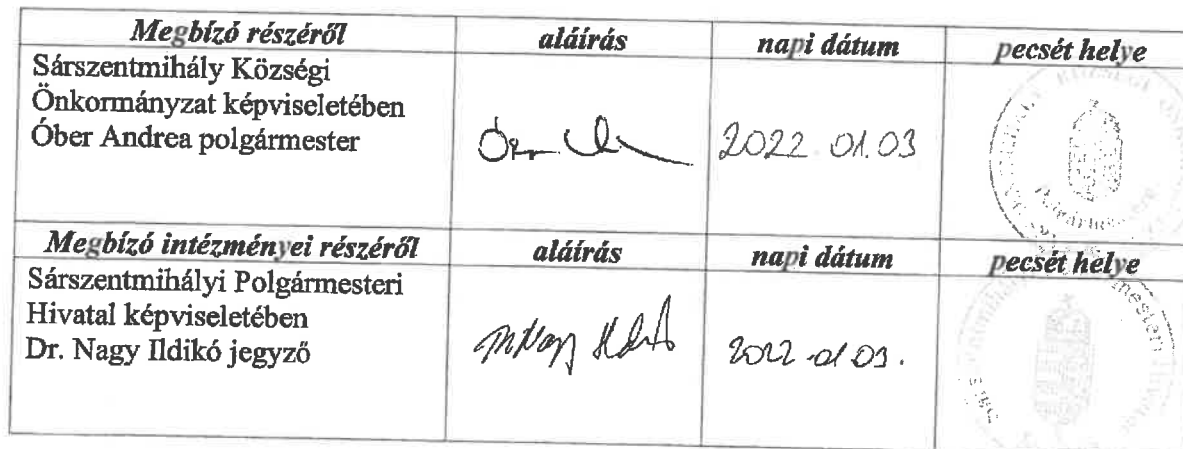 Megbízó részéről aláírás napi dátum pecsét helye
Sárszentmihály Községi
Önkormányzat képviseletében
Óber Andrea polgármester 2022 01.03
Megbízó intézményei részéről aláírás napi dátum pecsét helye
Sárszentmihályi Polgármesteri
Hivatal képviseletében
Dr. Nagy Ildikó jegyző 2022 01 03.